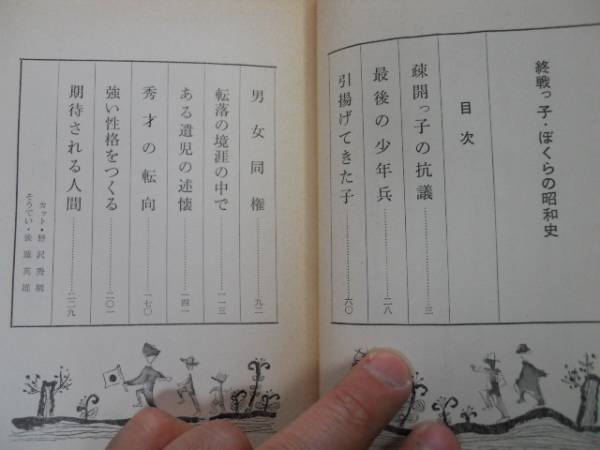 終戦っ子・ぼくらの昭和史
目次
疎開っ子の抗議……………三
最後の少年兵……………二八
引揚げてきた子……………六〇
男女同権……………九二
転落の境涯の中で……………一一三
ある遺児の述懐……………一四一
秀才の転向……………一七〇
強い性格をつくる……………二〇一
期待される人間……………二二九
カット・
そうてい・